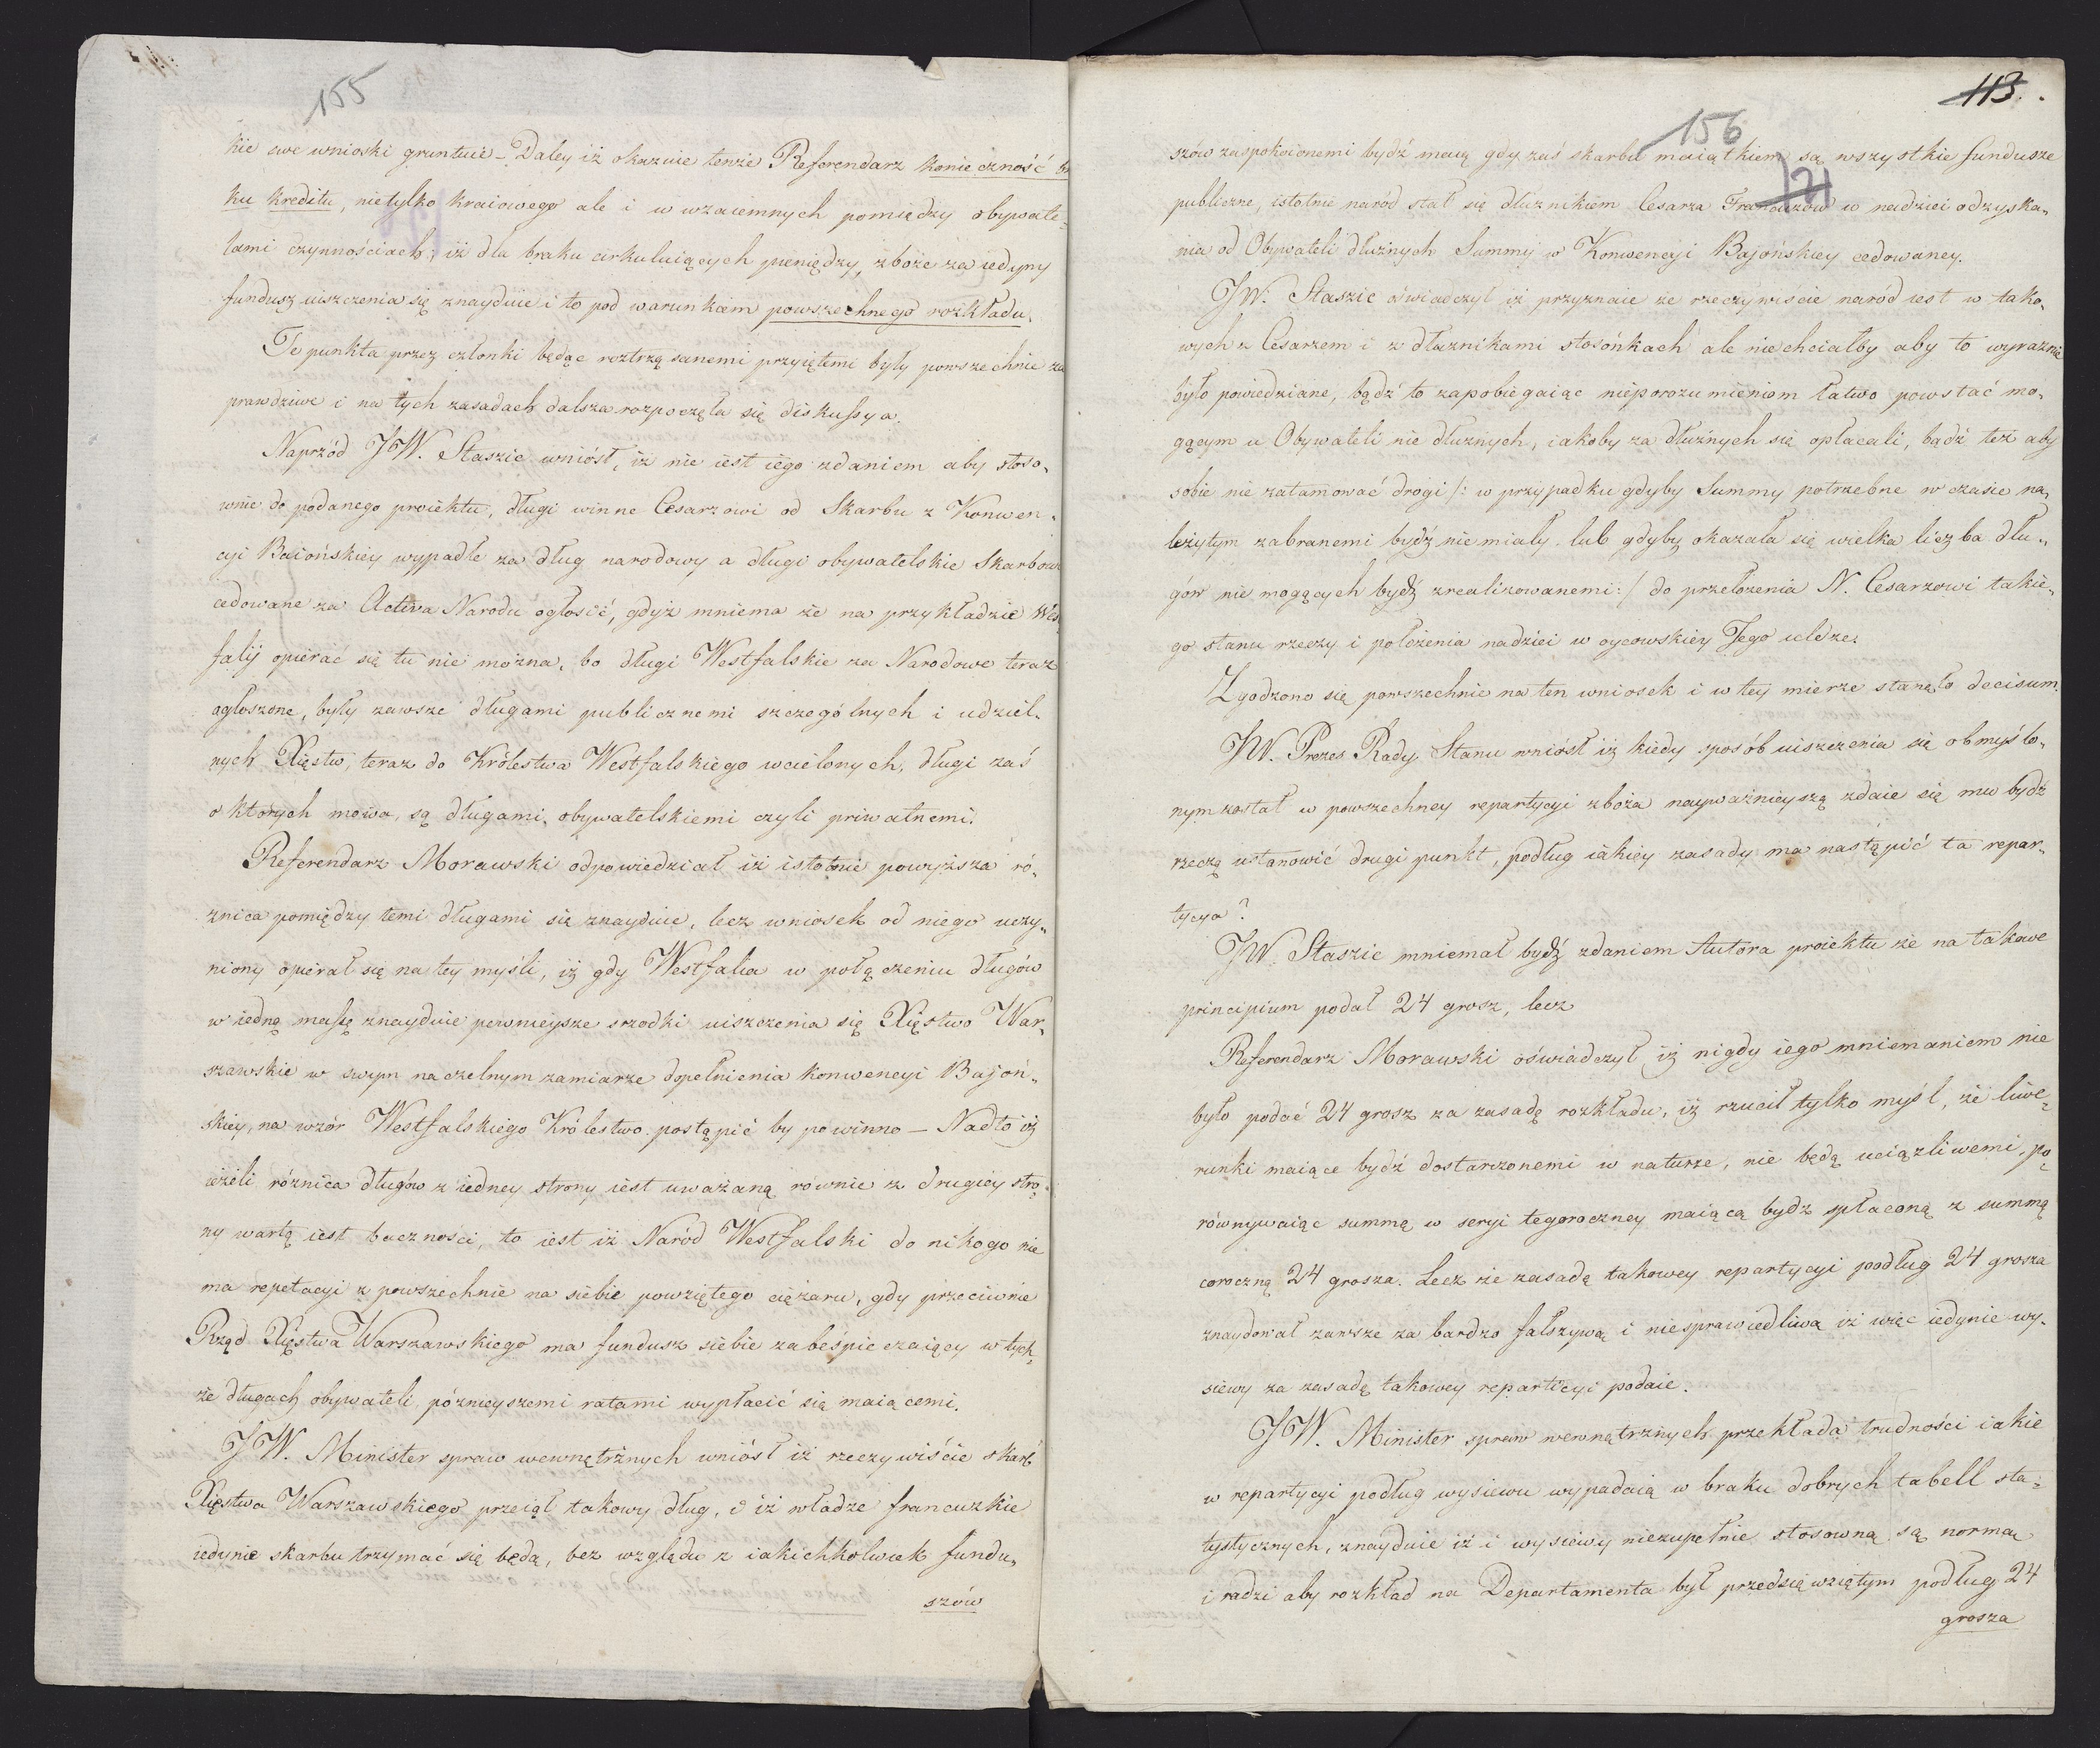 155
kie swe wnioski gruntuie – Daley iż okazuie tenże Referendarz konieczność br
ku kreditu, nietylko kraiowego ale i w wzaiemnych pomiędzy obywate-
lami czynnościach; iż dla braku cirkuluiących pieniędzy, zboże za iedyny
fundusz uiszczenia się znayduie i to pod warunkiem powszechnego rozkładu.
Te punkta przez członki będąc roztrząsanemi przyiętemi były powszechnie za
prawdziwe i na tych zasadach dalsza rozpoczęła się diskussya.
Naprzód JW. Staszic wniósł, iż nie iest iego zdaniem aby stoso-
wnie do podanego proiektu, długi winne Cesarzowi od Skarbu z Konwen-
cyi Baiońskiey wypadłe za dług narodowy a długi obywatelskie Skarbow
cedowane za Activa Narodu ogłosić, gdyż mniema że na przykładzie Wes-
falij opierać się tu nie można, bo długi Westfalskie za Narodowe teraz
ogłoszone, były zawsze długami publicznemi szczególnych i udziel-
nych Xięstw, teraz do Królestwa Westfalskiego wcielonych, długi zaś
o ktorych mowa, są długami obywatelskiemi czyli priwatnemi.
Referendarz Morawski odpowiedział iż istotnie powyższa ró-
żnica pomiędzy temi długami się znayduie, lecz wniosek od niego uczy-
niony opierał się na tey myśli, iż gdy Westfalia w połączeniu długów
w iedną massę znayduie pewnieysze srzodki uiszczenia się Xięstwo War-
szawskie w swym naczelnym zamiarze dopełnienia konwencyi Bajoń-
skiey, na wzór Westfalskiego Królestwo postąpić by powinno – Nadto iż
ieżeli róznica długów z iedney strony iest uważaną równie z drugiey stro-
ny wartą iest baczności, to iest iż Naród Westfalski do nikogo nie
ma repetacyi z powszechnie na siebie powziętego ciężaru, gdy przeciwnie
Rząd Xięstwa Warszawskiego ma fundusz siebie zabeśpieczaiący w tych-
że długach obywateli, póznieyszemi ratami wypłacić się maiącemi.
JW. Minister spraw wewnętrznych wniósł iż rzeczywiście skarb
Xięstwa Warszawskiego przeiął takowy dług, i iż władze francuzkie
iedynie skarbu trzymać się będą, bez względu z iakichkolwiek fundu-
szów
113.
156
121
szów zaspokoionemi bydź maią gdy zaś skarbu maiątkiem są wszystkie fundusze
publiczne, istotnie naród stał się dłużnikiem Cesarza Francuzów w nadziei odzyska-
nia od Obywateli dłużnych Summy w Konwencyi Bajońskiey cedowaney.
JW. Staszic oświadczył iż przyznaie że rzeczywiscie naród iest w tako-
wych z Cesarzem i z dłuznikami stosónkach ale niechciałby aby to wyraźnie
było powiedziane, bądź to zapobiegaiąc nieporozumieniom łatwo powstać mo-
gącym u Obywateli nie dłużnych, iakoby za dłużnych się opłacali, bądź też aby
sobie nie zatamować drogi /: w przypadku gdyby Summy potrzebne w czasie na-
leżytym zabranemi bydź niemiały lub gdyby okazała się wielka liczba dłu-
gów nie mogących bydź zrealizowanemi :/ do przełożenia N. Cesarzowi takie-
go stanu rzeczy i położenia nadziei w oycowskiey Jego uldze.
Zgodzono się powszechnie na ten wniosek i w tey mierze stanęło decisum.
JW. Prezes Rady Stanu wniósł iż kiedy sposób uiszczenia się obmyślo-
nym został w powszechney repartycyi zboża nayważnieyszą zdaie się mu bydź
rzeczą ustanowić drugi punkt, podług iakiey zasady ma nastąpić ta repar-
tycya?
JW. Staszic mniemał bydź zdaniem Autora proiektu że na takowe
principium podał 24 grosz, lecz
Referendarz Morawski oświadczył iż nigdy iego mniemaniem nie
było podać 24 grosz za zasadę rozkładu, iż rzucił tylko myśl, że liwe-
runki maiące bydź dostarczonemi w naturze, nie będą uciązliwemi, po-
równywaiąc summą w seryi tegoroczney maiącą bydz spłaconą z summą
coroczną 24 grosza. Lecz że zasadę takowey repartycyi podług 24 grosza
znaydował zawsze za bardzo fałszywą i niesprawiedliwą iż więc iedynie wy-
siewy za zasadę takowey reparticyi podaie.
JW. Minister spraw wewnątrznych przekłada trudności iakie
w repartycyi podług wysiewu wypadaią w braku dobrych tabell sta-
tystycznych, znayduie iż i wysiewy niezupełnie stosowną są normą
i radzi aby rozkład na Departamenta był przedsięwziętym podług 24
grosza